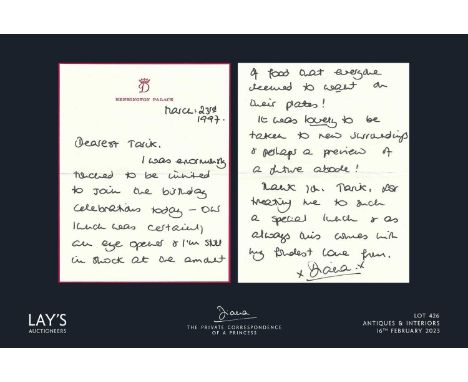 D
KENSINGTON PALACE
March: 23rd
1997.
Dearest Tarik.
I was enormously
touched to be invited
to join the birthday
celebrations today - our
lunch was certainly
an eye opener & I'm still
in shock at the amount
of food that everyone
seemed to want on
their plates!
It was lovely to be
taken to new surroundings
& perhaps a preview of
a future abode!
Thank you, Tarik, for
treating me to such
a special lunch & as
always this comes with
my fondest love from.
x Diana. x
LAY'S
AUCTIONEERS
Diana
THE PRIVATE CORRESPONDENCE
OF A PRINCESS
LOT 426
ANTIQUES & INTERIORS
16TH FEBRUARY 2023